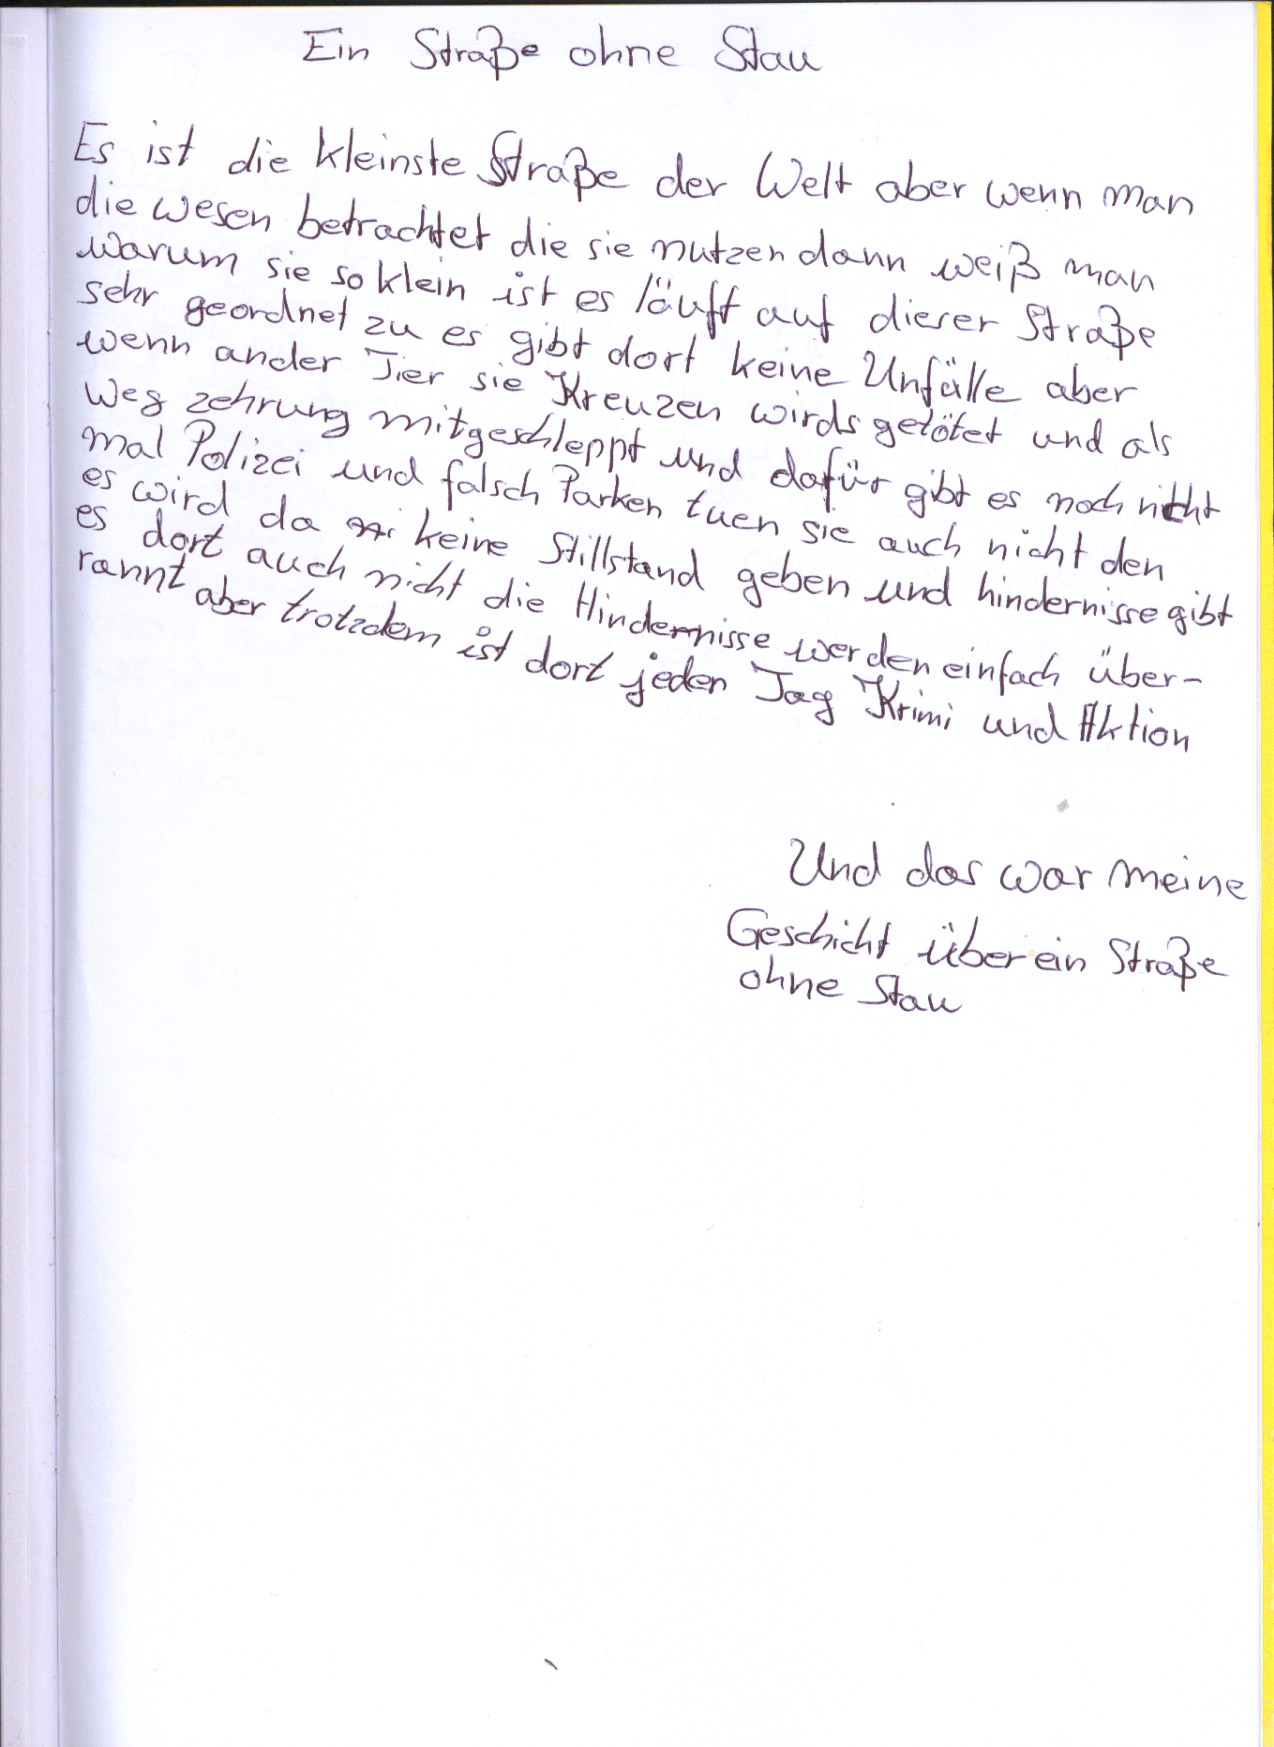 Ein Straße ohne Stau
Es ist die kleinste Straße der Welt aber wenn man
die wesen betrachtet die sie nutzen dann weiß man
warum sie so klein ist es läuft auf dieser Straße
sehr geordnet zu es gibt dort keine Unfälle aber
wenn ander Tier sie Kreuzen wirds getötet und als
Weg zehrung mitgeschleppt und dafür gibt es noch nicht
mal Polizei und falsch Parken tuen sie auch nicht den
es wird da keine Stillstand geben und hindernisse gibt
es dort auch nicht die Hindernisse werden einfach über-
rannt aber trotzdem ist dort jeden Tag Krimi und Aktion
Und das war meine
Geschicht über ein Straße
ohne Stau